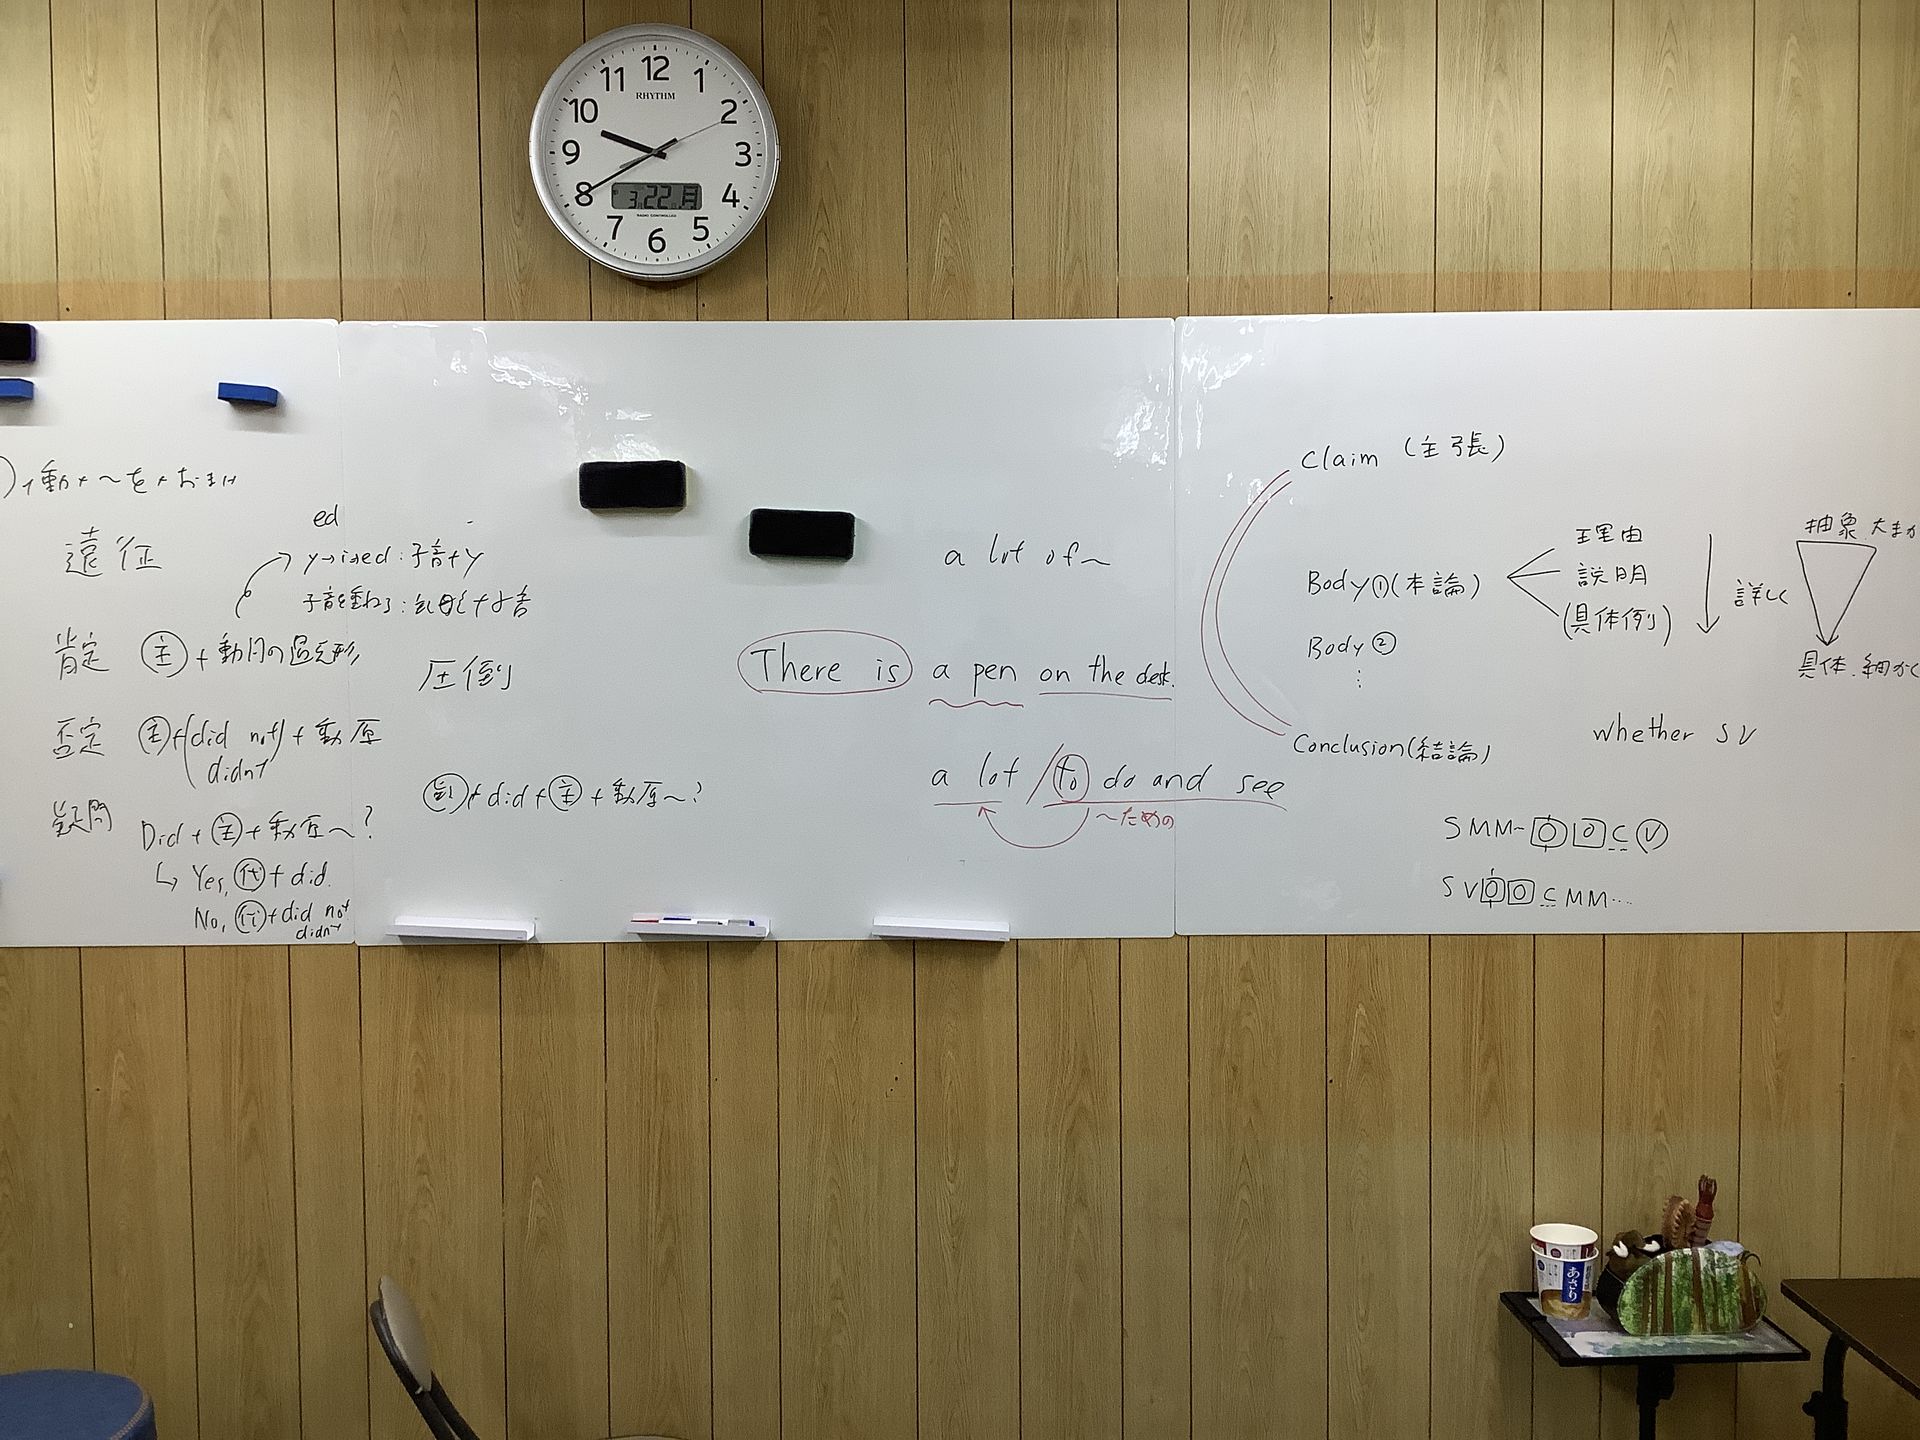 12
1
2
3
4
5
6
7
8
9
10
11
RHYTHM
3月22日月
RADIO CONTROLLED
)+動+〜を+おまけ
遠征
ed
y→ied : 子音+y
子音を重ねる :
肯定 主+動詞の過去形
否定 主+(did not)+動原
didn't
疑問 Did+主+動原〜?
↳ Yes, 代+did.
No, 代+did not
didn't
圧倒
疑+did+主+動原〜?
a lot of〜
There is a pen on the desk.
a lot / to do and see
〜ための
Claim (主張)
Body①(本論)
理由
説明
(具体例)
詳しく
Body②
⋮
Conclusion(結論)
抽象 大まか
具体、細かく
whether SV
SMM〜OOCV
SVOOCMM…
あさり